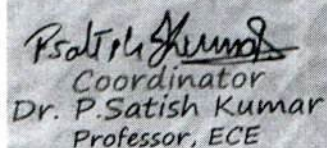 Psatish Kumar
Coordinator
Dr. P.Satish Kumar
Professor, ECE